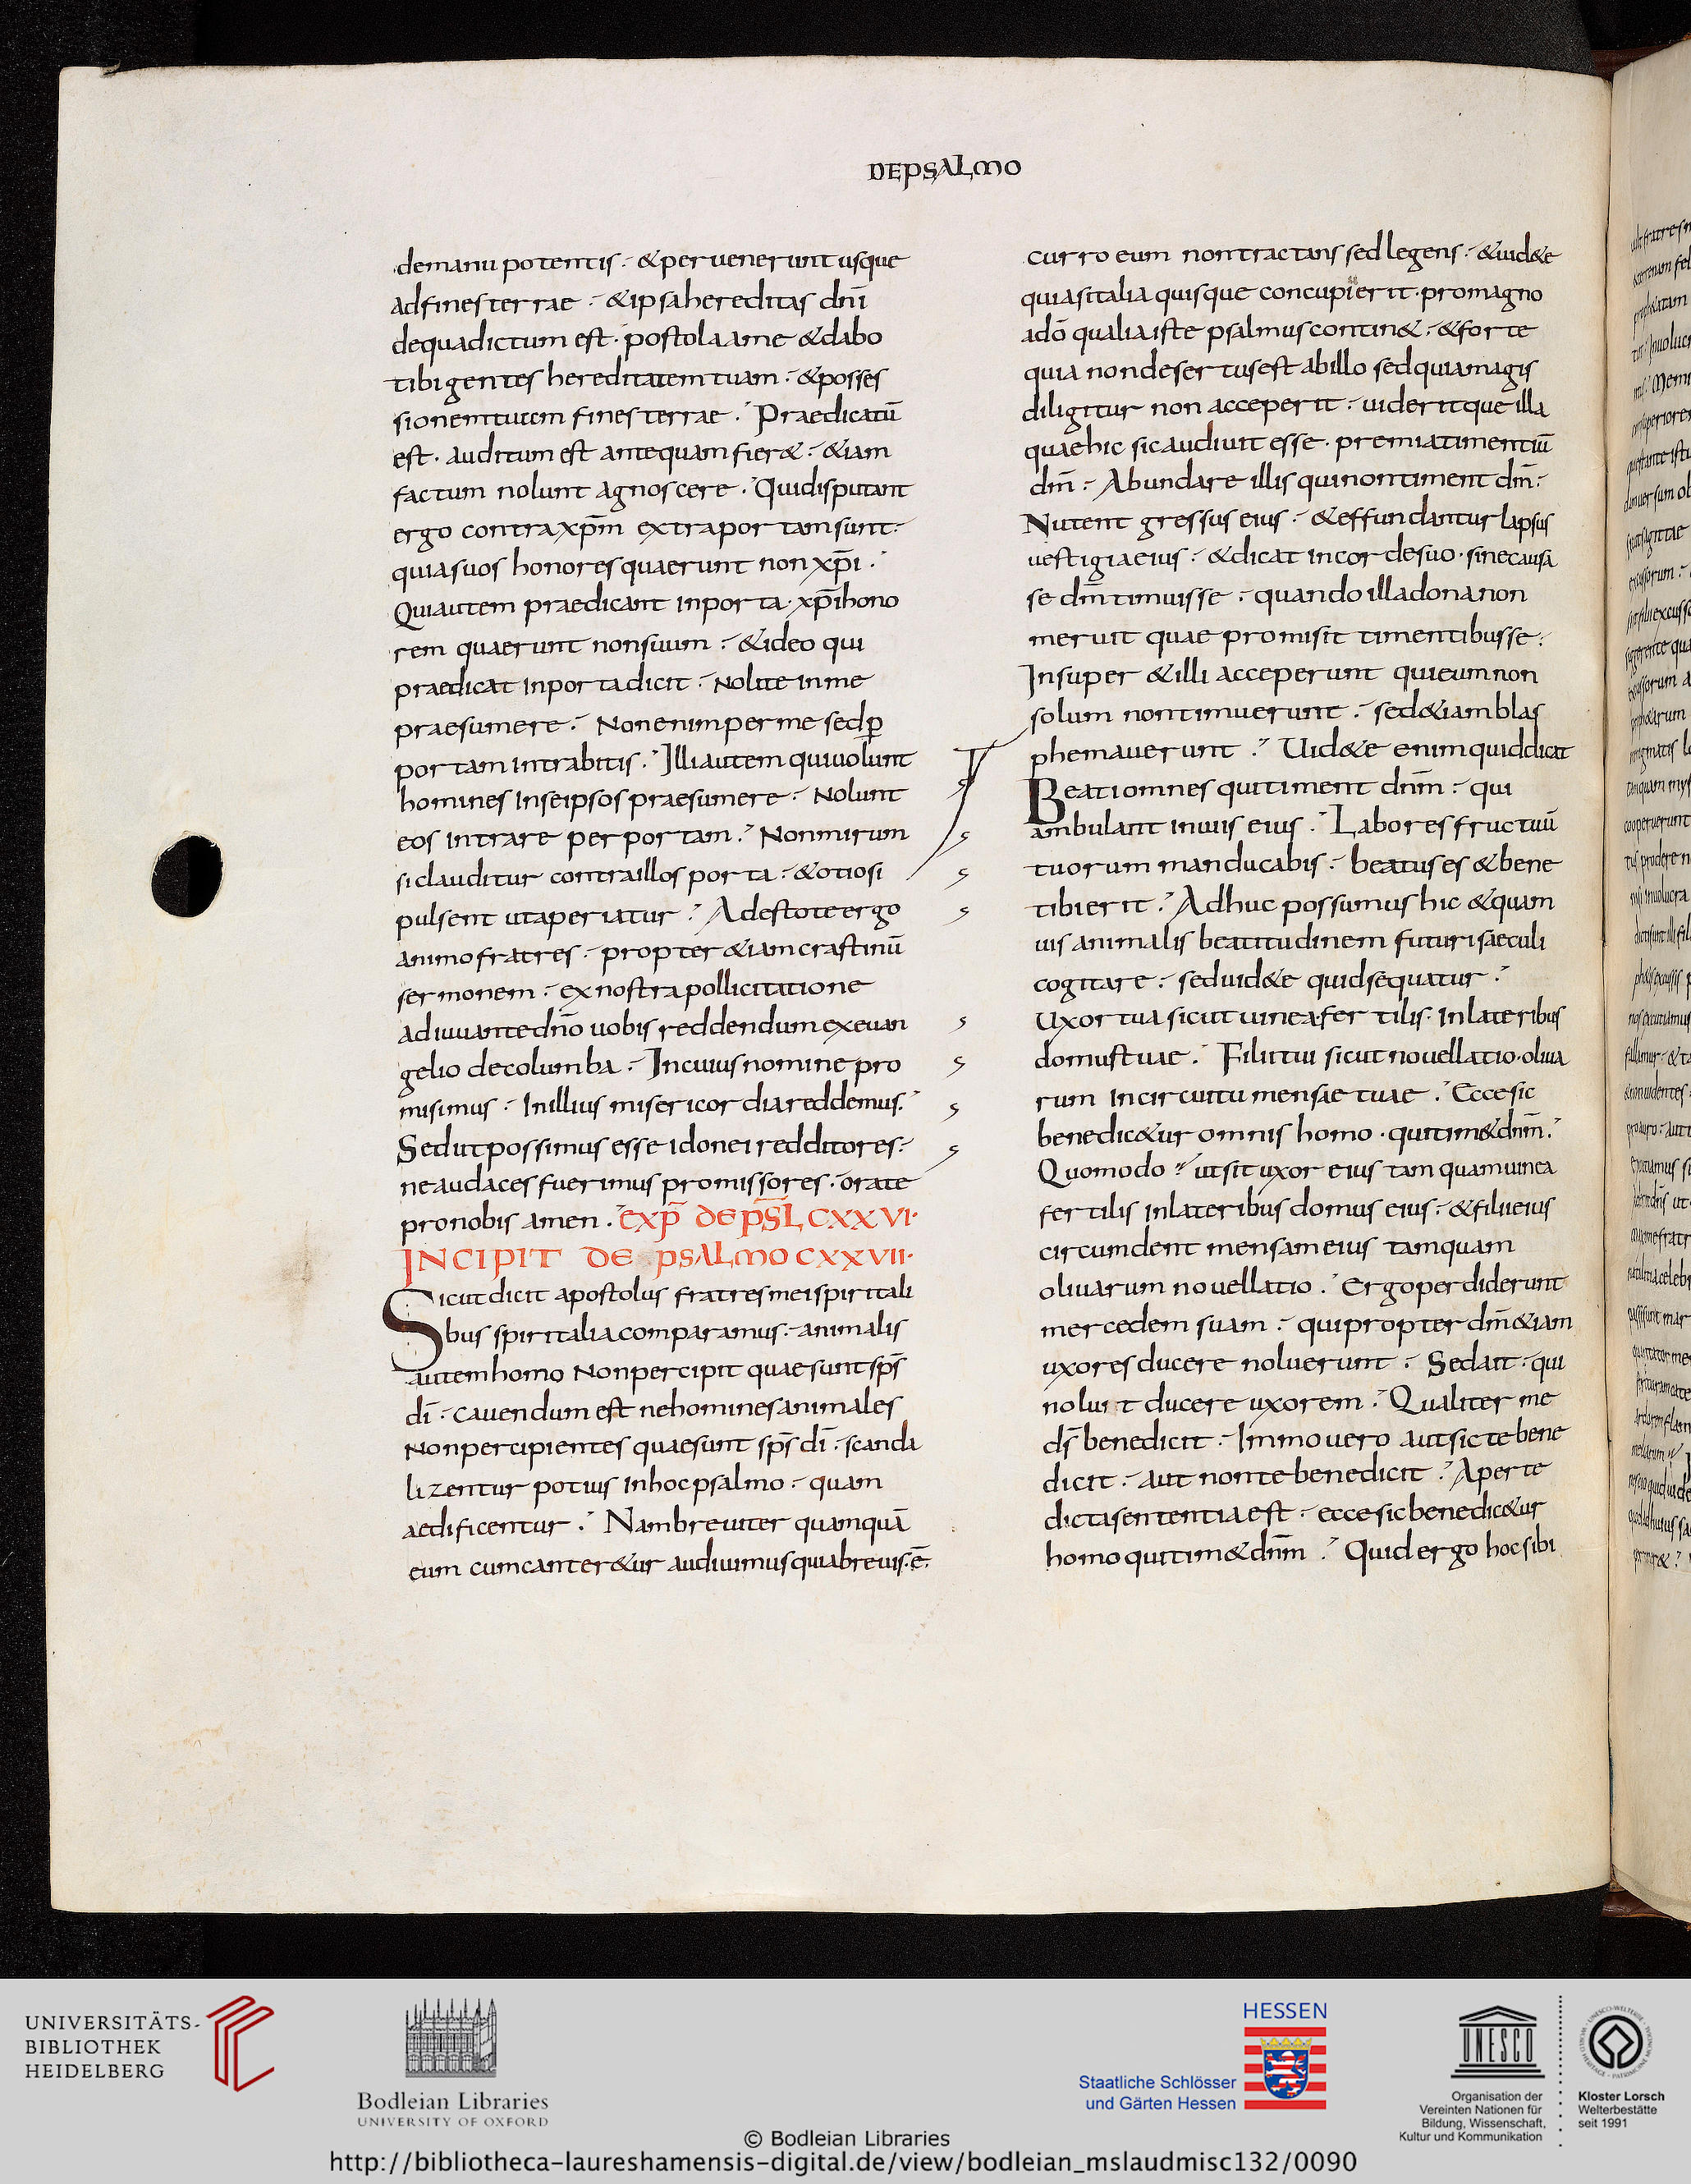 DEPSALMO
demanu potentis. & peruenerunt usque
adfines terrae. & ipsa hereditas dn̄i
dequa dictum est. postola ame & dabo
tibi gentes hereditatem tuam. & posses
sionem tuam fines terrae. Praedicatū
est. auditum est antequam fier&. &iam
factum nolunt agnoscere. Qui disputant
ergo contra xp̄m extra portam sunt.
quia suos honores quaerunt non xp̄i.
Qui autem praedicant in porta. xp̄i hono
rem quaerunt non suum. & ideo qui
praedicat in porta dicit. Nolite in me
praesumere. Non enim per me sed p̄
portam intrabitis. Illi autem qui uolunt
homines in seipsos praesumere. Nolunt
eos intrare per portam. Non mirum
si clauditur contra illos porta. & otiosi
pulsent ut aperiatur. Adestote ergo
animo fratres. propter &iam crastinū
sermonem. ex nostra pollicitatione
adiuuante dn̄o uobis reddendum ex euan
gelio de columba. In cuius nomine pro
misimus. In illius misericordia reddemus.
Sed ut possimus esse idonei redditores.
ne audaces fuerimus promissores. orate
pro nobis amen. EXP̄ DE PS̄L CXXVI.
INCIPIT DE PSALMO CXXVII.
Sicut dicit apostolus fratres mei spiritali
bus spiritalia comparamus. animalis
autem homo Non percipit quae sunt sp̄s
dī. Cauendum est ne homines animales
Non percipientes quae sunt sp̄s dī. scanda
lizentur potius in hoc psalmo. quam
aedificentur. Nam breuiter quamquā
eum cum canter&ur audiuimus quia breuis. ē.
curro eum non tractans sed legens. & uid&e
quia si talia quisque concupierit. pro magno
a dō qualia iste psalmus contin&. & forte
quia non desertus est ab illo sed quia magis
diligitur non acceperit. uideritque illa
quae hic sic audiuit esse. premia timentiū
dm̄. Abundare illis qui non timent dm̄.
Nutent gressus eius. & effundantur lapsus
uestigia eius. & dicat in corde suo. sine causa
se dm̄ timuisse. quando illa dona non
meruit quae promisit timentibus se.
Insuper & illi acceperunt qui eum non
solum non timuerunt. sed &iam blas
phemauerunt. Uid&e enim quid dicat
Beati omnes qui timent dnm̄. qui
ambulant in uiis eius. Labores fructuū
tuorum manducabis. beatus es & bene
tibi erit. Adhuc possumus hic & quam
uis animalis beatitudinem futuri saeculi
cogitare. sed uid&e quid sequatur.
Uxor tua sicut uinea fertilis. In lateribus
domus tuae. Filii tui sicut nouellatio. oliua
rum in circuitu mensae tuae. Ecce sic
benedic&ur omnis homo. qui tim& dnm̄.
Quomodo ut sit uxor eius tamquam uinea
fertilis in lateribus domus eius. & filii eius
circumdent mensam eius tamquam
oliuarum nouellatio. Ergo perdiderunt
mercedem suam. qui propter dm̄ &iam
uxores ducere noluerunt. Sed ait. qui
noluit ducere uxorem. Qualiter me
ds̄ benedicit. Immo uero aut sic te bene
dicit. aut non te benedicit. Aperte
dicta sententia est. ecce sic benedic&ur
homo qui tim& dnm̄. Quid ergo hoc sibi
UNIVERSITÄTS-
BIBLIOTHEK
HEIDELBERG
Bodleian Libraries
UNIVERSITY OF OXFORD
HESSEN
Staatliche Schlösser
und Gärten Hessen
UNESCO
Organisation der
Vereinten Nationen für
Bildung, Wissenschaft,
Kultur und Kommunikation
Kloster Lorsch
Welterbestätte
seit 1991
© Bodleian Libraries
http://bibliotheca-laureshamensis-digital.de/view/bodleian_mslaudmisc132/0090